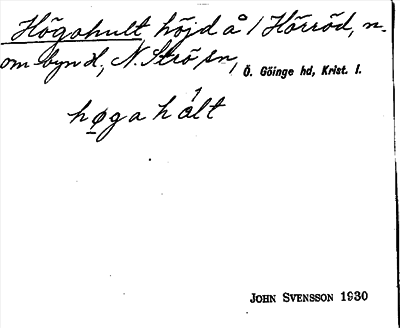 Högahult, höjd å 1 Hörröd, n.
om byn H, N. Strö sn,
Ö. Göinge hd, Krist. l.
høgahált
JOHN SVENSSON 1930